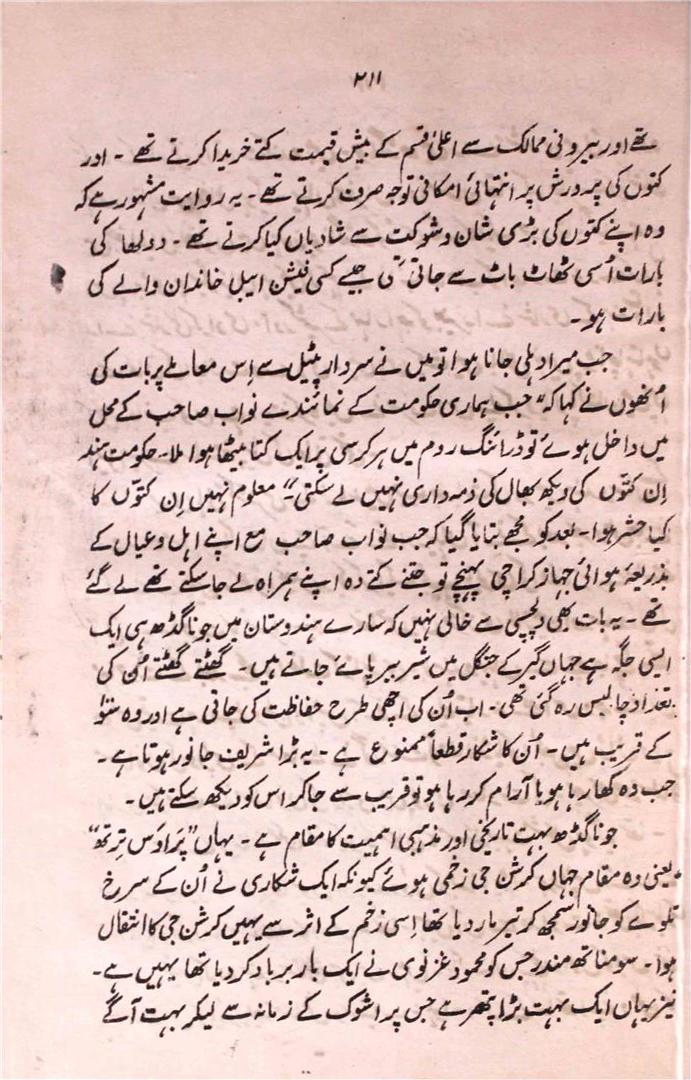 ۲۱۱
تھے اور بیرونی ممالک سے اعلیٰ قسم کے بیش قیمت کتے خریدا کرتے تھے ۔ اور
کتوں کی پرورش پر انتہائی امکانی توجہ صرف کرتے تھے ۔ یہ روایت مشہور ہے کہ
وہ اپنے کتوں کی بڑی شان و شوکت سے شادیاں کیا کرتے تھے ۔ دولھا کی
بارات اُسی ٹھاٹ باٹ سے جاتی تھی جیسے کسی فیشن ایبل خاندان والے کی
بارات ہو ۔
جب میرا دہلی جانا ہوا تو میں نے سردار پٹیل سے اِس معاملے پر بات کی
اُنھوں نے کہا کہ ”جب ہماری حکومت کے نمائندے نواب صاحب کے محل
میں داخل ہوئے تو ڈرائنگ روم میں ہر کرسی پر ایک کتا بیٹھا ہوا ملا ۔ حکومت ہند
اِن کتّوں کی دیکھ بھال کی ذمہ داری نہیں لے سکتی“۔ معلوم نہیں اِن کتّوں کا
کیا حشر ہوا ۔ بعد کو مجھے بتایا گیا کہ جب نواب صاحب مع اپنے اہل و عیال کے
بذریعۂ ہوائی جہاز کراچی پہنچے تو جتنے کتے وہ اپنے ہمراہ لے جا سکتے تھے لے گئے
تھے ۔ یہ بات بھی دلچسپی سے خالی نہیں کہ سارے ہندوستان میں جوناگڈھ ہی ایک
ایسی جگہ ہے جہاں گیر کے جنگل میں شیر ببر پائے جاتے ہیں ۔ گھٹتے گھٹتے اُن کی
تعداد چالیس رہ گئی تھی ۔ اب اُن کی اچھی طرح حفاظت کی جاتی ہے اور وہ سَتو
کے قریب ہیں ۔ اُن کا شکار قطعاً ممنوع ہے ۔ یہ بڑا شریف جانور ہوتا ہے ۔
جب وہ کھا رہا ہو یا آرام کر رہا ہو تو قریب سے جا کر اس کو دیکھ سکتے ہیں ۔
جوناگڈھ بہت تاریخی اور مذہبی اہمیت کا مقام ہے ۔ یہاں ”پَراوَس تِرتھ“
یعنی وہ مقام جہاں کرشن جی زخمی ہوئے کیونکہ ایک شکاری نے اُن کے سرخ
تلوے کو جانور سمجھ کر تیر مار دیا تھا اِسی زخم کے اثر سے یہیں کرشن جی کا انتقال
ہوا ۔ سومناتھ مندر جس کو محمود غزنوی نے ایک بار برباد کر دیا تھا یہیں ہے ۔
نیز یہاں ایک بہت بڑا پتھر ہے جس پر اشوک کے زمانہ سے لیکر بہت آگے